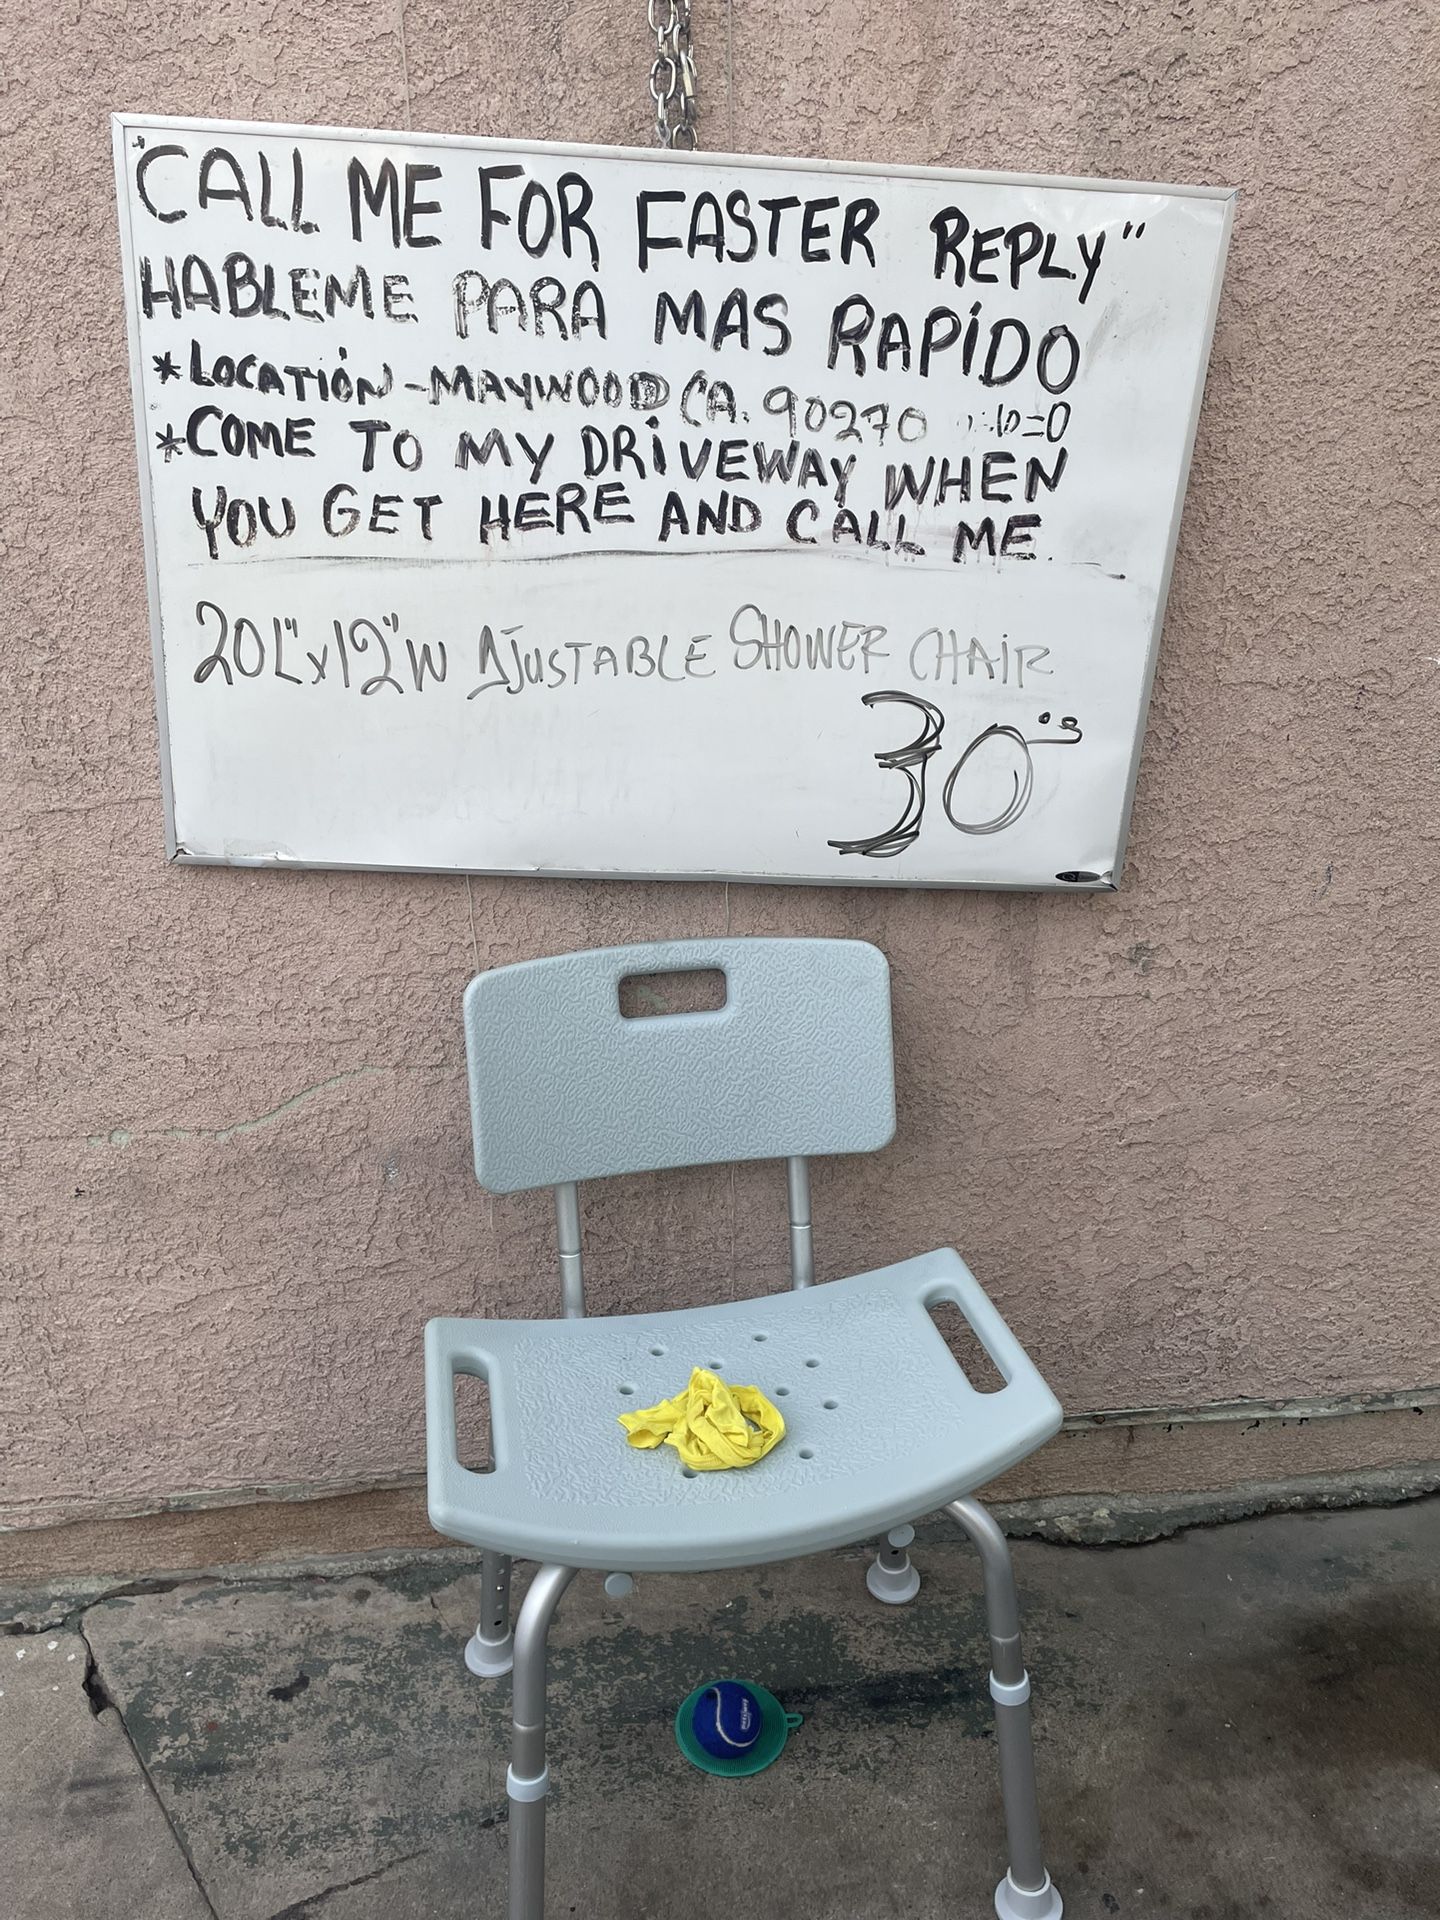 "CALL ME FOR FASTER REPLY"
HABLEME PARA MAS RAPIDO
*LOCATION-MAYWOOD CA. 90270
*COME TO MY DRIVEWAY WHEN
YOU GET HERE AND CALL ME.
20L"x12"W AJUSTABLE SHOWER CHAIR
30